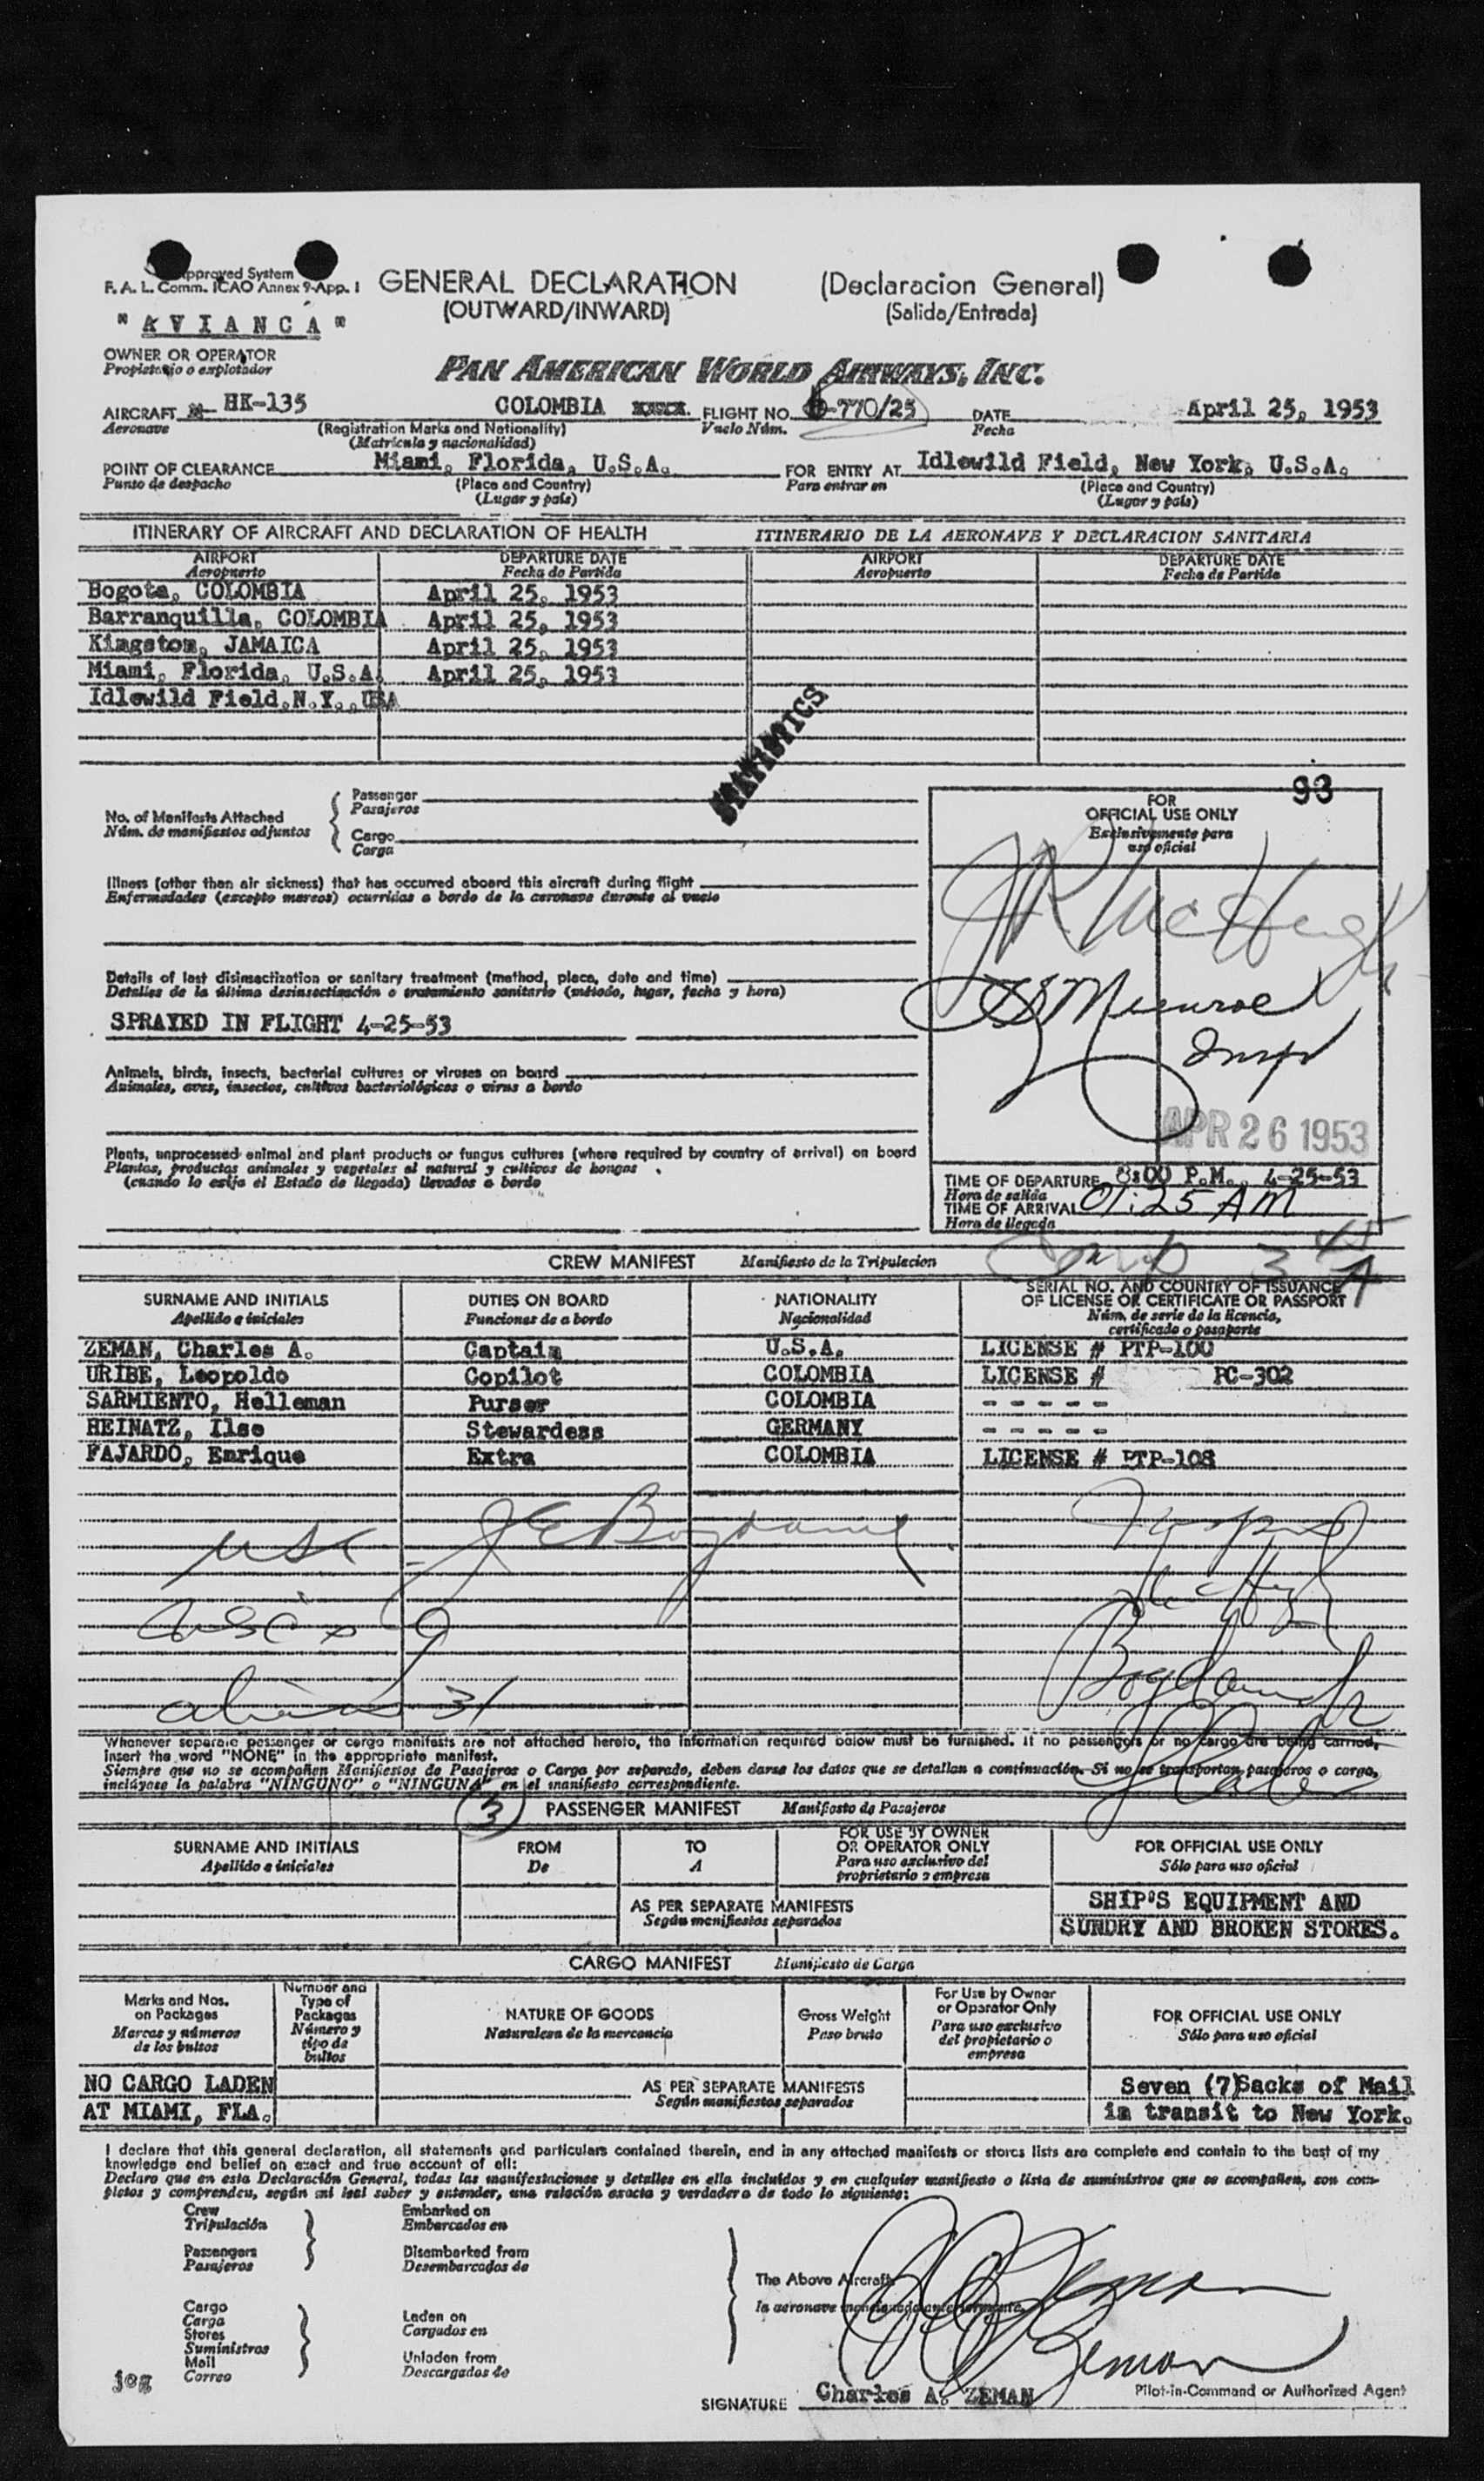 Approved System
F. A. L. Comm. ICAO Annex 9-App. 1
GENERAL DECLARATION
(Declaracion General)
(OUTWARD/INWARD)
(Salida/Entrada)
" A V I A N C A "
OWNER OR OPERATOR
Propietario o explotador
PAN AMERICAN WORLD AIRWAYS, INC.
AIRCRAFT HK-135 COLOMBIA XXXX FLIGHT NO. -770/25 DATE April 25, 1953
Aeronave (Registration Marks and Nationality) Vuelo Núm. Fecha
(Matricula y nacionalidad)
POINT OF CLEARANCE Miami, Florida, U.S.A. FOR ENTRY AT Idlewild Field, New York, U.S.A.
Punto de despacho (Place and Country) Para entrar en (Place and Country)
(Lugar y país) (Lugar y país)
ITINERARY OF AIRCRAFT AND DECLARATION OF HEALTH ITINERARIO DE LA AERONAVE Y DECLARACION SANITARIA
AIRPORT DEPARTURE DATE AIRPORT DEPARTURE DATE
Aeropuerto Fecha de Partida Aeropuerto Fecha de Partida
Bogota, COLOMBIA April 25, 1953
Barranquilla, COLOMBIA April 25, 1953
Kingston, JAMAICA April 25, 1953
Miami, Florida, U.S.A. April 25, 1953
Idlewild Field,N.Y.,USA
STATISTICS
93
Passenger
Pasajeros
No. of Manifests Attached
Núm. de manifiestos adjuntos
Cargo
Carga
FOR
OFFICIAL USE ONLY
Exclusivamente para
uso oficial
Illness (other than air sickness) that has occurred aboard this aircraft during flight
Enfermedades (excepto mareos) ocurridas a bordo de la aeronave durante el vuelo
JR McHugh
Details of last disinsectization or sanitary treatment (method, place, date and time)
Detalles de la última desinsectización o tratamiento sanitario (método, lugar, fecha y hora)
SPRAYED IN FLIGHT 4-25-53
Munroe
Insp
Animals, birds, insects, bacterial cultures or viruses on board
Animales, aves, insectos, cultivos bacteriológicos o virus a bordo
APR 26 1953
Plants, unprocessed animal and plant products or fungus cultures (where required by country of arrival) on board
Plantas, productos animales y vegetales al natural y cultivos de hongos
(cuando lo exija el Estado de llegada) llevados a bordo
TIME OF DEPARTURE 8:00 P.M., 4-25-53
Hora de salida
TIME OF ARRIVAL 01:25 AM
Hora de llegada
CREW MANIFEST Manifiesto de la Tripulacion
SURNAME AND INITIALS DUTIES ON BOARD NATIONALITY SERIAL NO. AND COUNTRY OF ISSUANCE
OF LICENSE OR CERTIFICATE OR PASSPORT
Apellido e iniciales Funciones de a bordo Nacionalidad Núm. de serie de la licencia,
certificado o pasaporte
ZEMAN, Charles A. Captain U.S.A. LICENSE # PTP-100
URIBE, Leopoldo Copilot COLOMBIA LICENSE # PC-302
SARMIENTO, Helleman Purser COLOMBIA - - - - -
HEINATZ, Ilse Stewardess GERMANY - - - - -
FAJARDO, Enrique Extra COLOMBIA LICENSE # PTP-108
usc
9
aliens 31
McHugh
Whenever separate passenger or cargo manifests are not attached hereto, the information required below must be furnished. If no passengers or no cargo are being carried,
insert the word "NONE" in the appropriate manifest.
Siempre que no se acompañen Manifiestos de Pasajeros o Carga por separado, deben darse los datos que se detallan a continuación. Si no se transportan pasajeros o carga,
inclúyase la palabra "NINGUNO" o "NINGUNA" en el manifiesto correspondiente.
3 PASSENGER MANIFEST Manifiesto de Pasajeros
SURNAME AND INITIALS FROM TO FOR USE BY OWNER
OR OPERATOR ONLY FOR OFFICIAL USE ONLY
Apellido e iniciales De A Para uso exclusivo del
propietario o empresa Sólo para uso oficial
AS PER SEPARATE MANIFESTS
Según manifiestos separados
SHIP'S EQUIPMENT AND
SUNDRY AND BROKEN STORES.
CARGO MANIFEST Manifiesto de Carga
Marks and Nos.
on Packages
Marcas y números
de los bultos
Number and
Type of
Packages
Número y
tipo de
bultos
NATURE OF GOODS
Naturaleza de la mercancía
Gross Weight
Peso bruto
For Use by Owner
or Operator Only
Para uso exclusivo
del propietario o
empresa
FOR OFFICIAL USE ONLY
Sólo para uso oficial
NO CARGO LADEN
AT MIAMI, FLA.
AS PER SEPARATE MANIFESTS
Según manifiestos separados
Seven (7)Sacks of Mail
in transit to New York.
I declare that this general declaration, all statements and particulars contained therein, and in any attached manifests or stores lists are complete and contain to the best of my
knowledge and belief an exact and true account of all:
Declaro que en esta Declaración General, todas las manifestaciones y detalles en ella incluidos y en cualquier manifiesto o lista de suministros que se acompañen, son com-
pletos y comprenden, según mi leal saber y entender, una relación exacta y verdadera de todo lo siguiente:
Crew
Tripulación
Passengers
Pasajeros
Embarked on
Embarcados en
Disembarked from
Desembarcados de
Cargo
Carga
Stores
Suministros
Mail
Correo
Laden on
Cargados en
Unladen from
Descargados de
The Above Aircraft
la aeronave mencionada anteriormente.
Zeman
Zeman
jeg
SIGNATURE Charles A. ZEMAN Pilot-in-Command or Authorized Agent